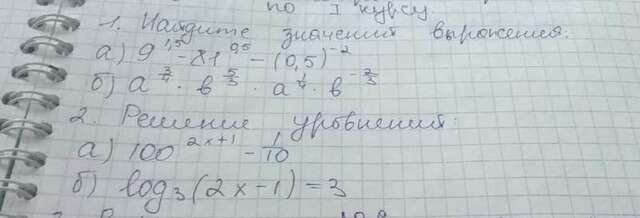 по I курсу
1. Найдите значений выражения:
а) 9^1,5 - 81^0,5 - (0,5)^-2
б) a^3/4 · b^5/3 · a^1/4 · b^-2/3
2. Решение уровнений:
а) 100^2x+1 - 1/10
б) log₃(2x-1) = 3